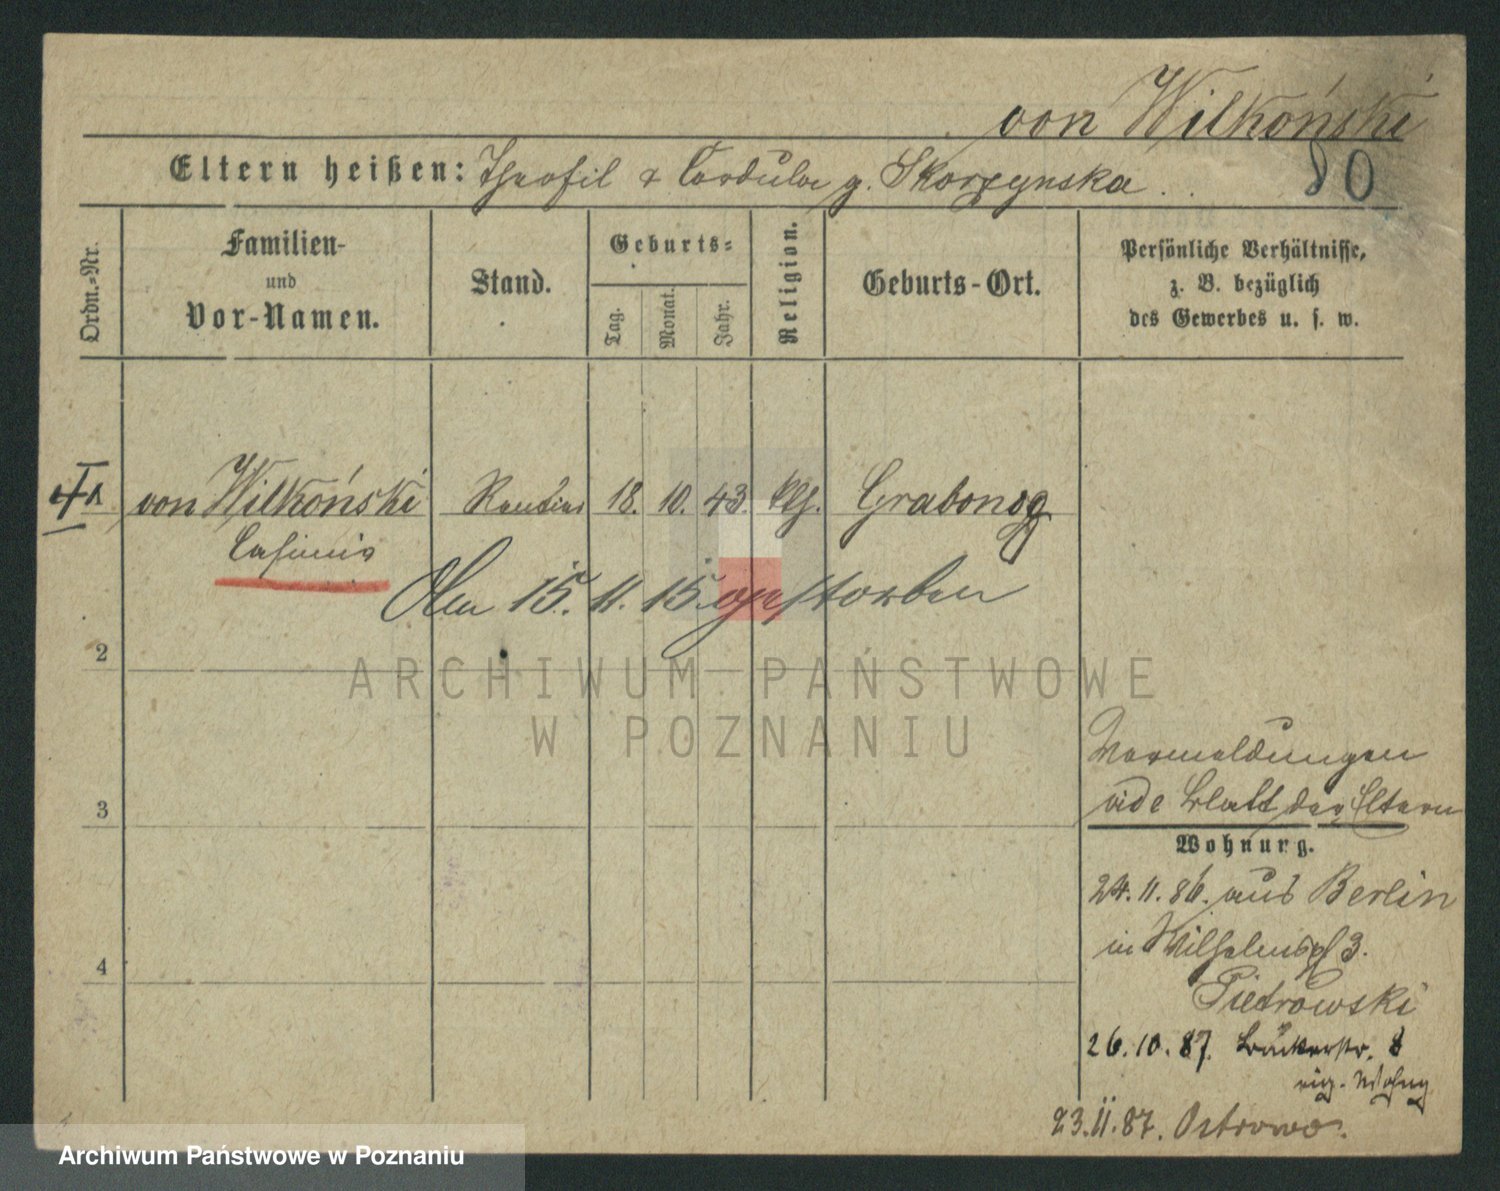 von Wilkoński
Eltern heißen: Theofil & Cordula g. Skorzynska.
80
Ordn.-Nr.
Familien-
und
Vor-Namen.
Stand.
Geburts-
Tag.
Monat.
Jahr.
Religion.
Geburts-Ort.
Persönliche Verhältnisse,
z. B. bezüglich
des Gewerbes u. s. w.
von Wilkoński Rentier 18. 10. 43. klh. Grabonog
Casimir
Am 15. 11. 15. gestorben
2
3
4
Vormeldungen
vide Blatt der Eltern
Wohnung.
24. 11. 86. aus Berlin
in Wilhelmspl 3.
Pietrowski
26. 10. 87. Bäckerstr. 8
eig. Wohng
23. 11. 87. Ostrowo.
ARCHIWUM PAŃSTWOWE
W POZNANIU
Archiwum Państwowe w Poznaniu